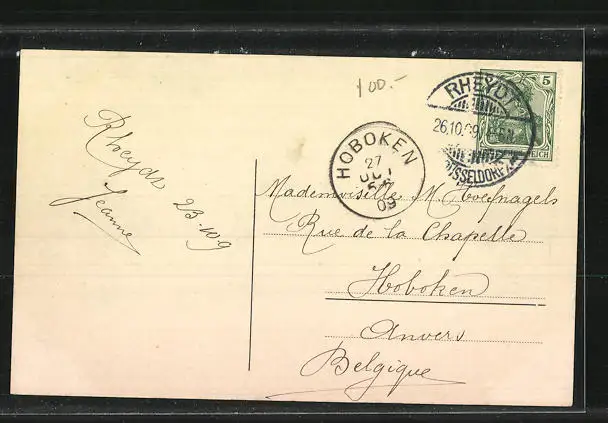 100.-
RHEYDT
5
26.10.09
REICH
(DÜSSELDORF)
HOBOKEN
27
OCT
09
Rheydt 23.10.9
Jeanne
Mademoiselle M.
Rue de la Chapelle
Hoboken
Anvers
Belgique